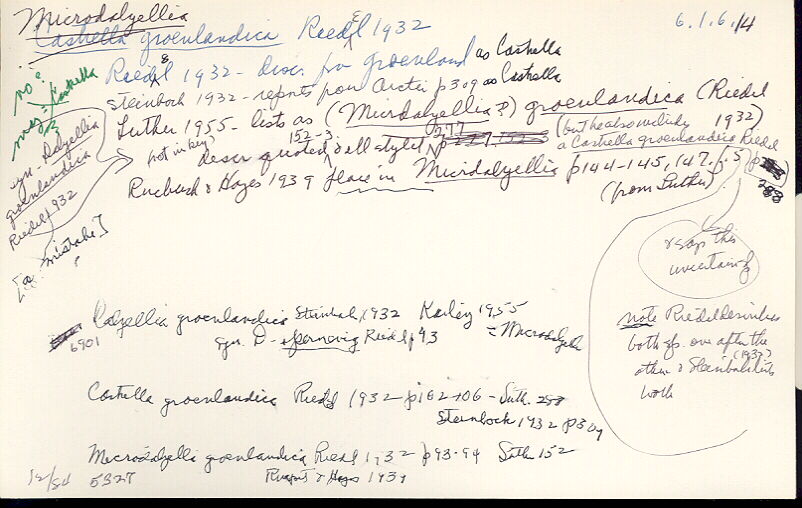 Microdalyellia
Castrella groenlandica Riedel 1932
6.1.6.14
Riedel 1932 - descr. from Greenland as Castrella
Steinbock 1932 - reports from Arctic p309 as Castrella
Luther 1955 - lists as (Microdalyellia?) groenlandica (Riedel 1932)
not in key
descr quoted 152-3 & all stylets p 277
(but he also includes a Castrella groenlandica Riedel p 288
Ruebush & Hayes 1939 place in Microdalyellia p144-145, 147. p.5
(from Luther)
no?
may
Castrella
p3
syn. Dalyellia
groenlandica
Riedel 1932
[a mistake?]
& says this
uncertain
note Riedel describes
both sp. one after the
other & Steinbock lists
(1932)
both
Dalyellia groenlandica Steinbock, 1932 Karling 1955
6901
syn. D. Riedel p 43
= Microdalyell
Castrella groenlandica Riedel 1932 p102-106 - Luth. 288
Steinbock 1932 p309
Microdalyellia groenlandica Riedel 1932 p93-94 Luth 152
12/54 5327
Ruebush & Hayes 1939